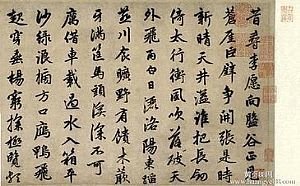 昔尋李愿向盤谷正見
高崖巨壁爭開張是時
新晴天井溢誰把長劍
倚太行衝風吹破落天
外飛雨白日灑洛陽東蹈
燕川食曠野有饋木蕨
芽滿筐馬頭溪深不可
厲借車載過水入箱平
沙綠浪榜方口鴈鴨飛
起穿垂楊窮探極覽頗